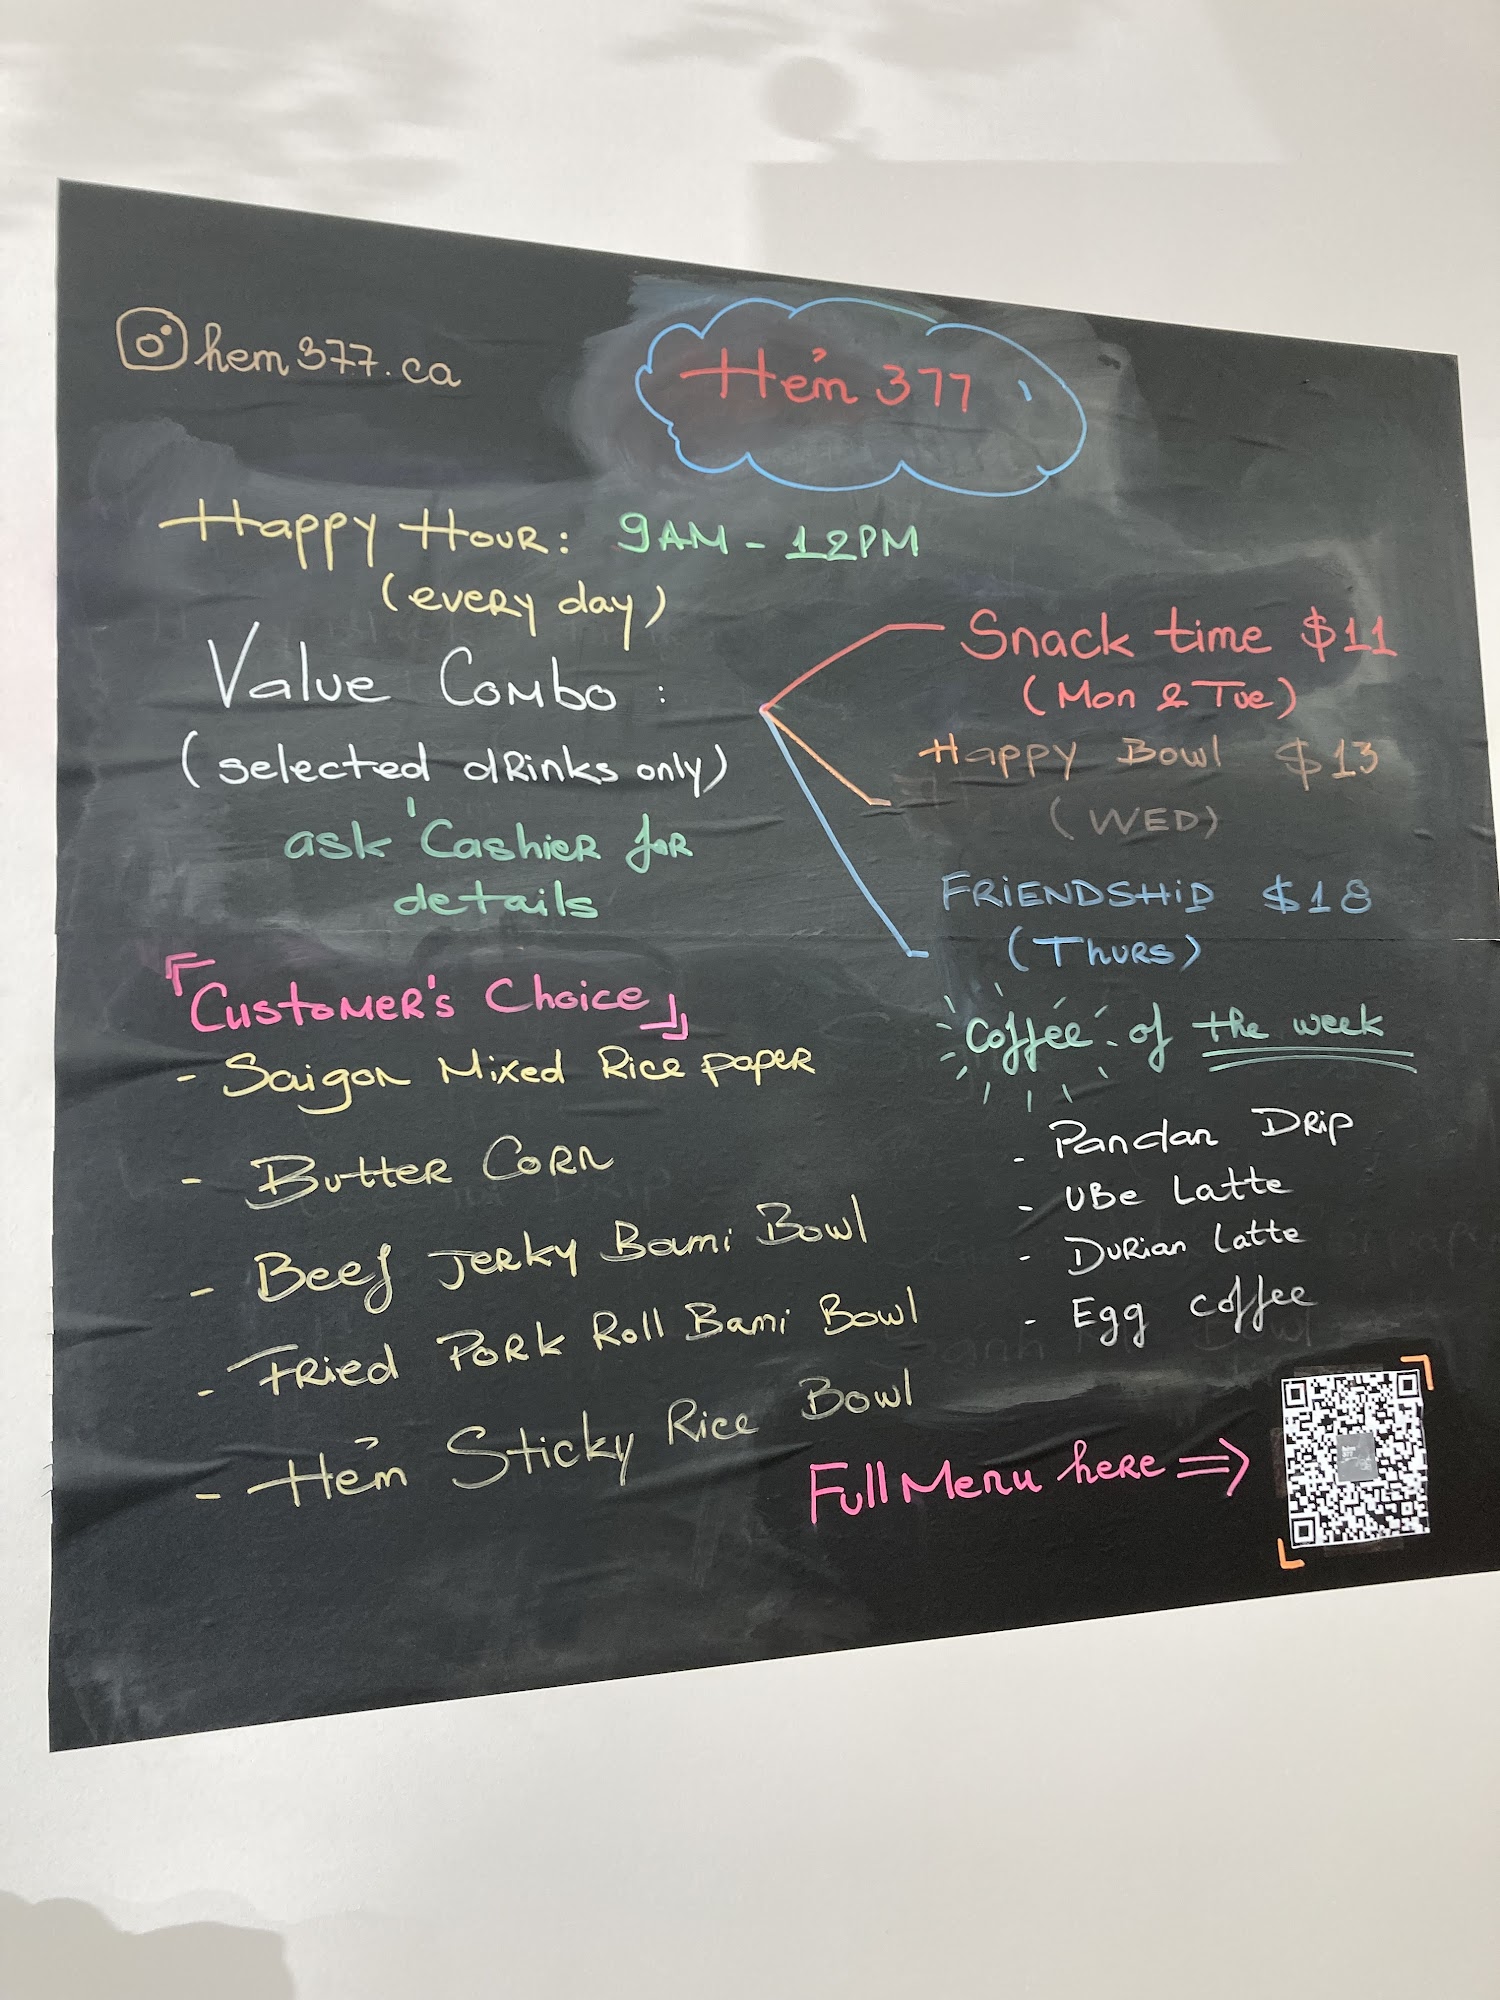 hem377.ca
Hẻm 377
Happy Hour: 9AM - 12PM
(every day)
Value Combo:
(selected drinks only)
ask Cashier for
details
Snack time $11
(Mon & Tue)
Happy Bowl $13
(WED)
FRIENDSHIP $18
(Thurs)
「Customer's Choice」
- Saigon Mixed Rice paper
- Butter Corn
- Beef Jerky Bami Bowl
- Fried Pork Roll Bami Bowl
- Hẻm Sticky Rice Bowl
Coffee of the week
- Pandan Drip
- UBe Latte
- Durian Latte
- Egg coffee
Full Menu here ⇒